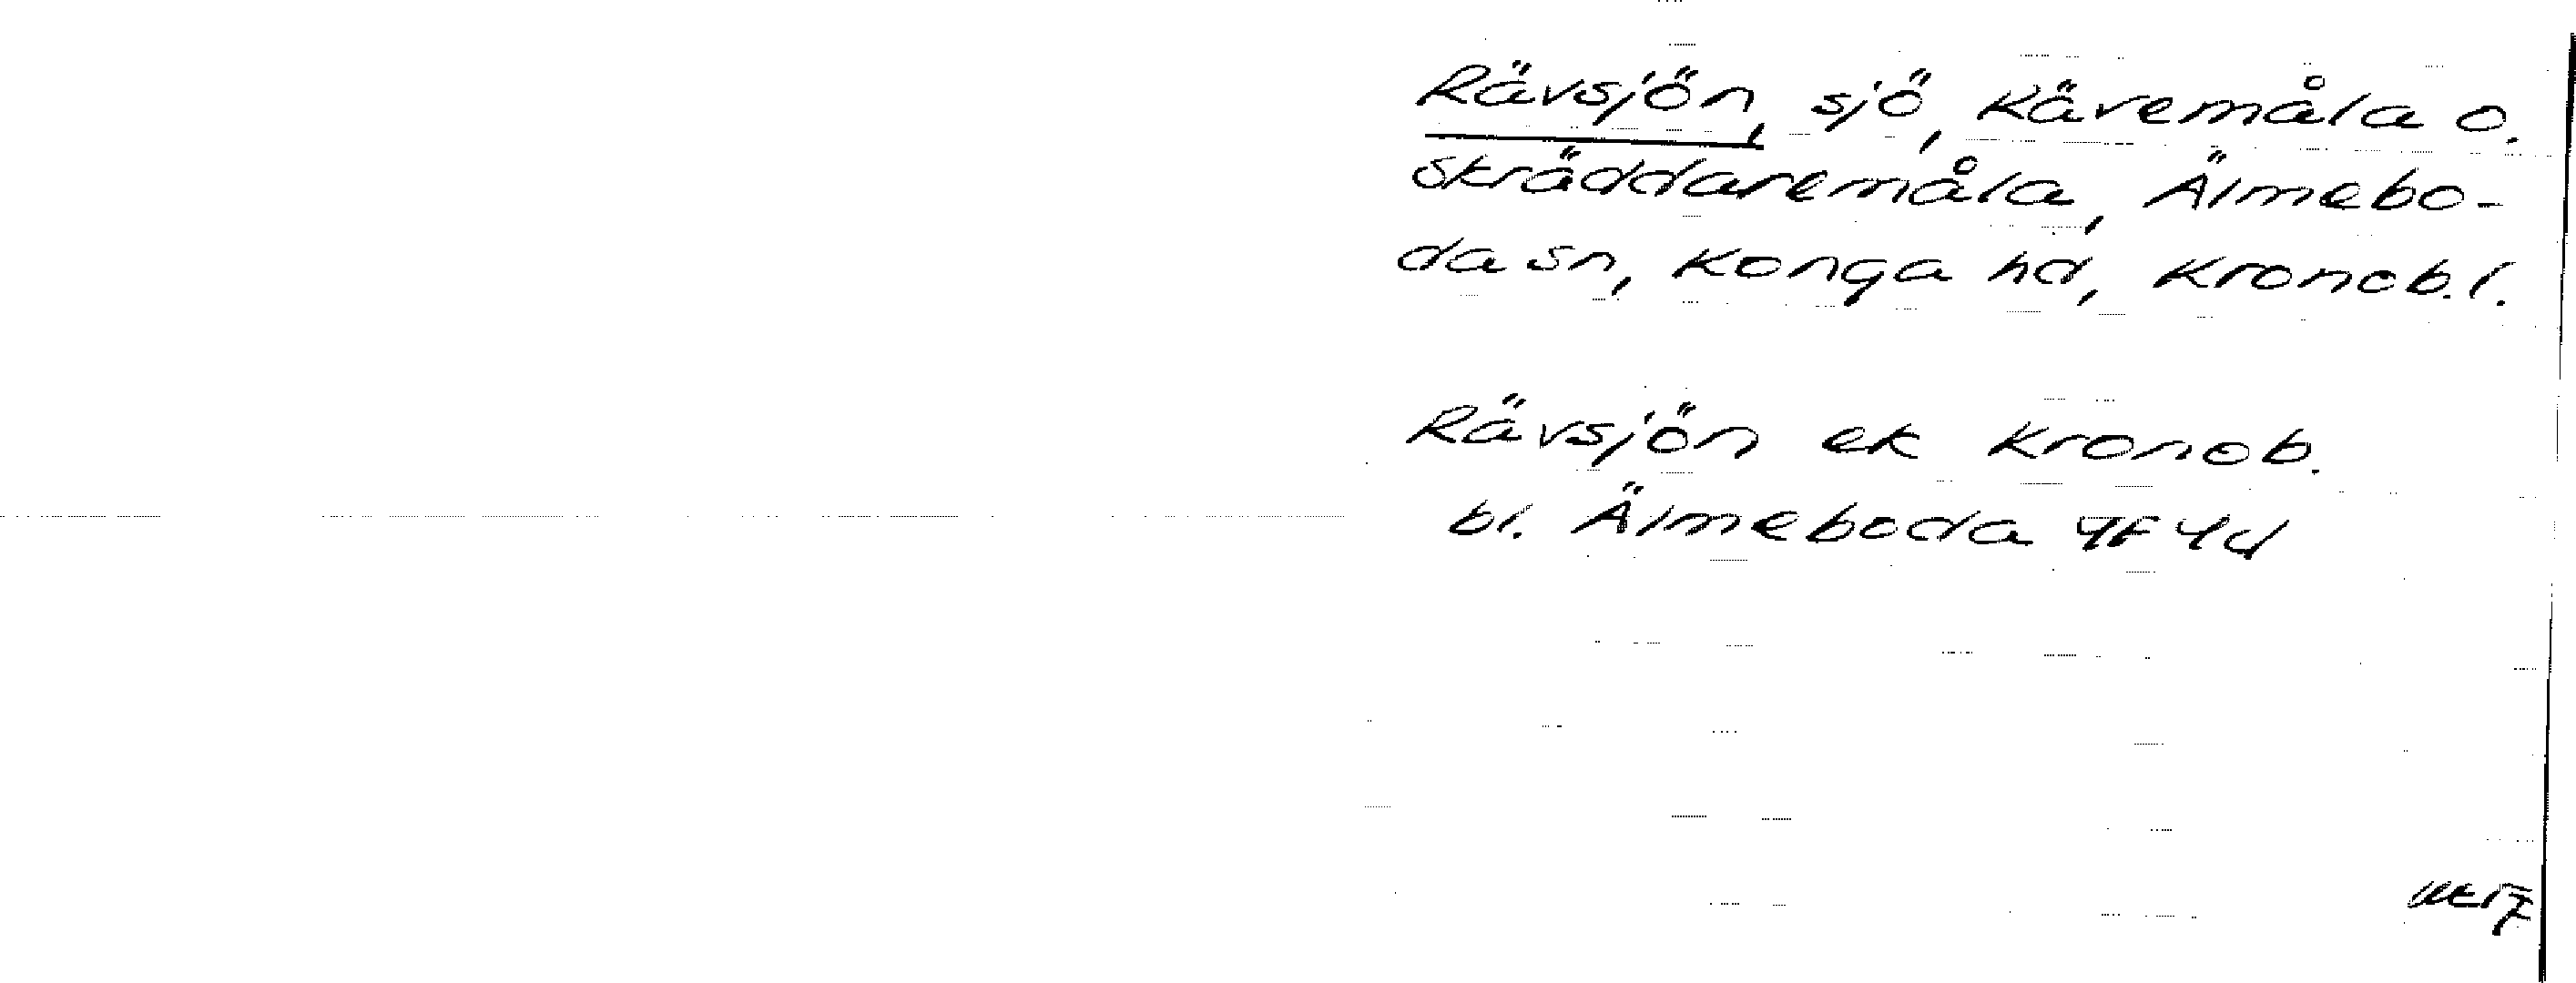 Rävsjön, sjö, Kävemåla o.
Skräddaremåla, Älmebo-
da sn, Konga hd, Kronob. l.
Rävsjön ek Kronob.
bl. Älmeboda 4F 4d